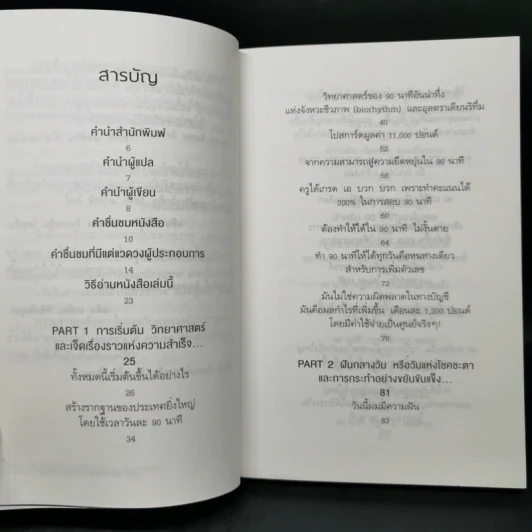 สารบัญ
คำนำสำนักพิมพ์
6
คำนำผู้แปล
7
คำนำผู้เขียน
8
คำชื่นชมหนังสือ
10
คำชื่นชมที่มีแต่แวดวงผู้ประกอบการ
14
วิธีอ่านหนังสือเล่มนี้
23
PART 1 การเริ่มต้น วิทยาศาสตร์
และเจ็ดเรื่องราวแห่งความสำเร็จ...
25
ทั้งหมดนี้เริ่มต้นขึ้นได้อย่างไร
26
สร้างรากฐานของประเทศยิ่งใหญ่
โดยใช้เวลาวันละ 90 นาที
34
วิทยาศาสตร์ของ 90 นาทีอันน่าทึ่ง
แห่งจังหวะชีวภาพ (biorhythm) และอุลตราเดียนริทึ่ม
40
โปสการ์ดมูลค่า 11,000 ปอนด์
52
จากความสามารถสู่ความยืดหยุ่นใน 90 นาที
56
ครูได้เกรด เอ บวก บวก เพราะทำคะแนนได้
200% ในการสอบ 90 นาที
60
ต้องทำให้ได้ใน 90 นาที ไม่งั้นตาย
64
ทำ 90 นาทีให้ได้ทุกวันคือหนทางเดียว
สำหรับการเพิ่มตัวเลข
72
มันไม่ใช่ความผิดพลาดในทางบัญชี
มันคือผลกำไรที่เพิ่มขึ้น เดือนละ 1,200 ปอนด์
โดยมีค่าใช้จ่ายเป็นศูนย์จริงๆ!
78
PART 2 ฝันกลางวัน หรือวันแห่งโชคชะตา
และการกระทำอย่างขยันขันแข็ง...
81
วันนี้ผมมีความฝัน
83